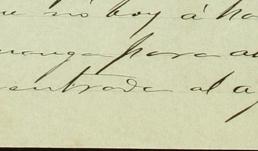 no voy á ha
manga para al
entrada al a